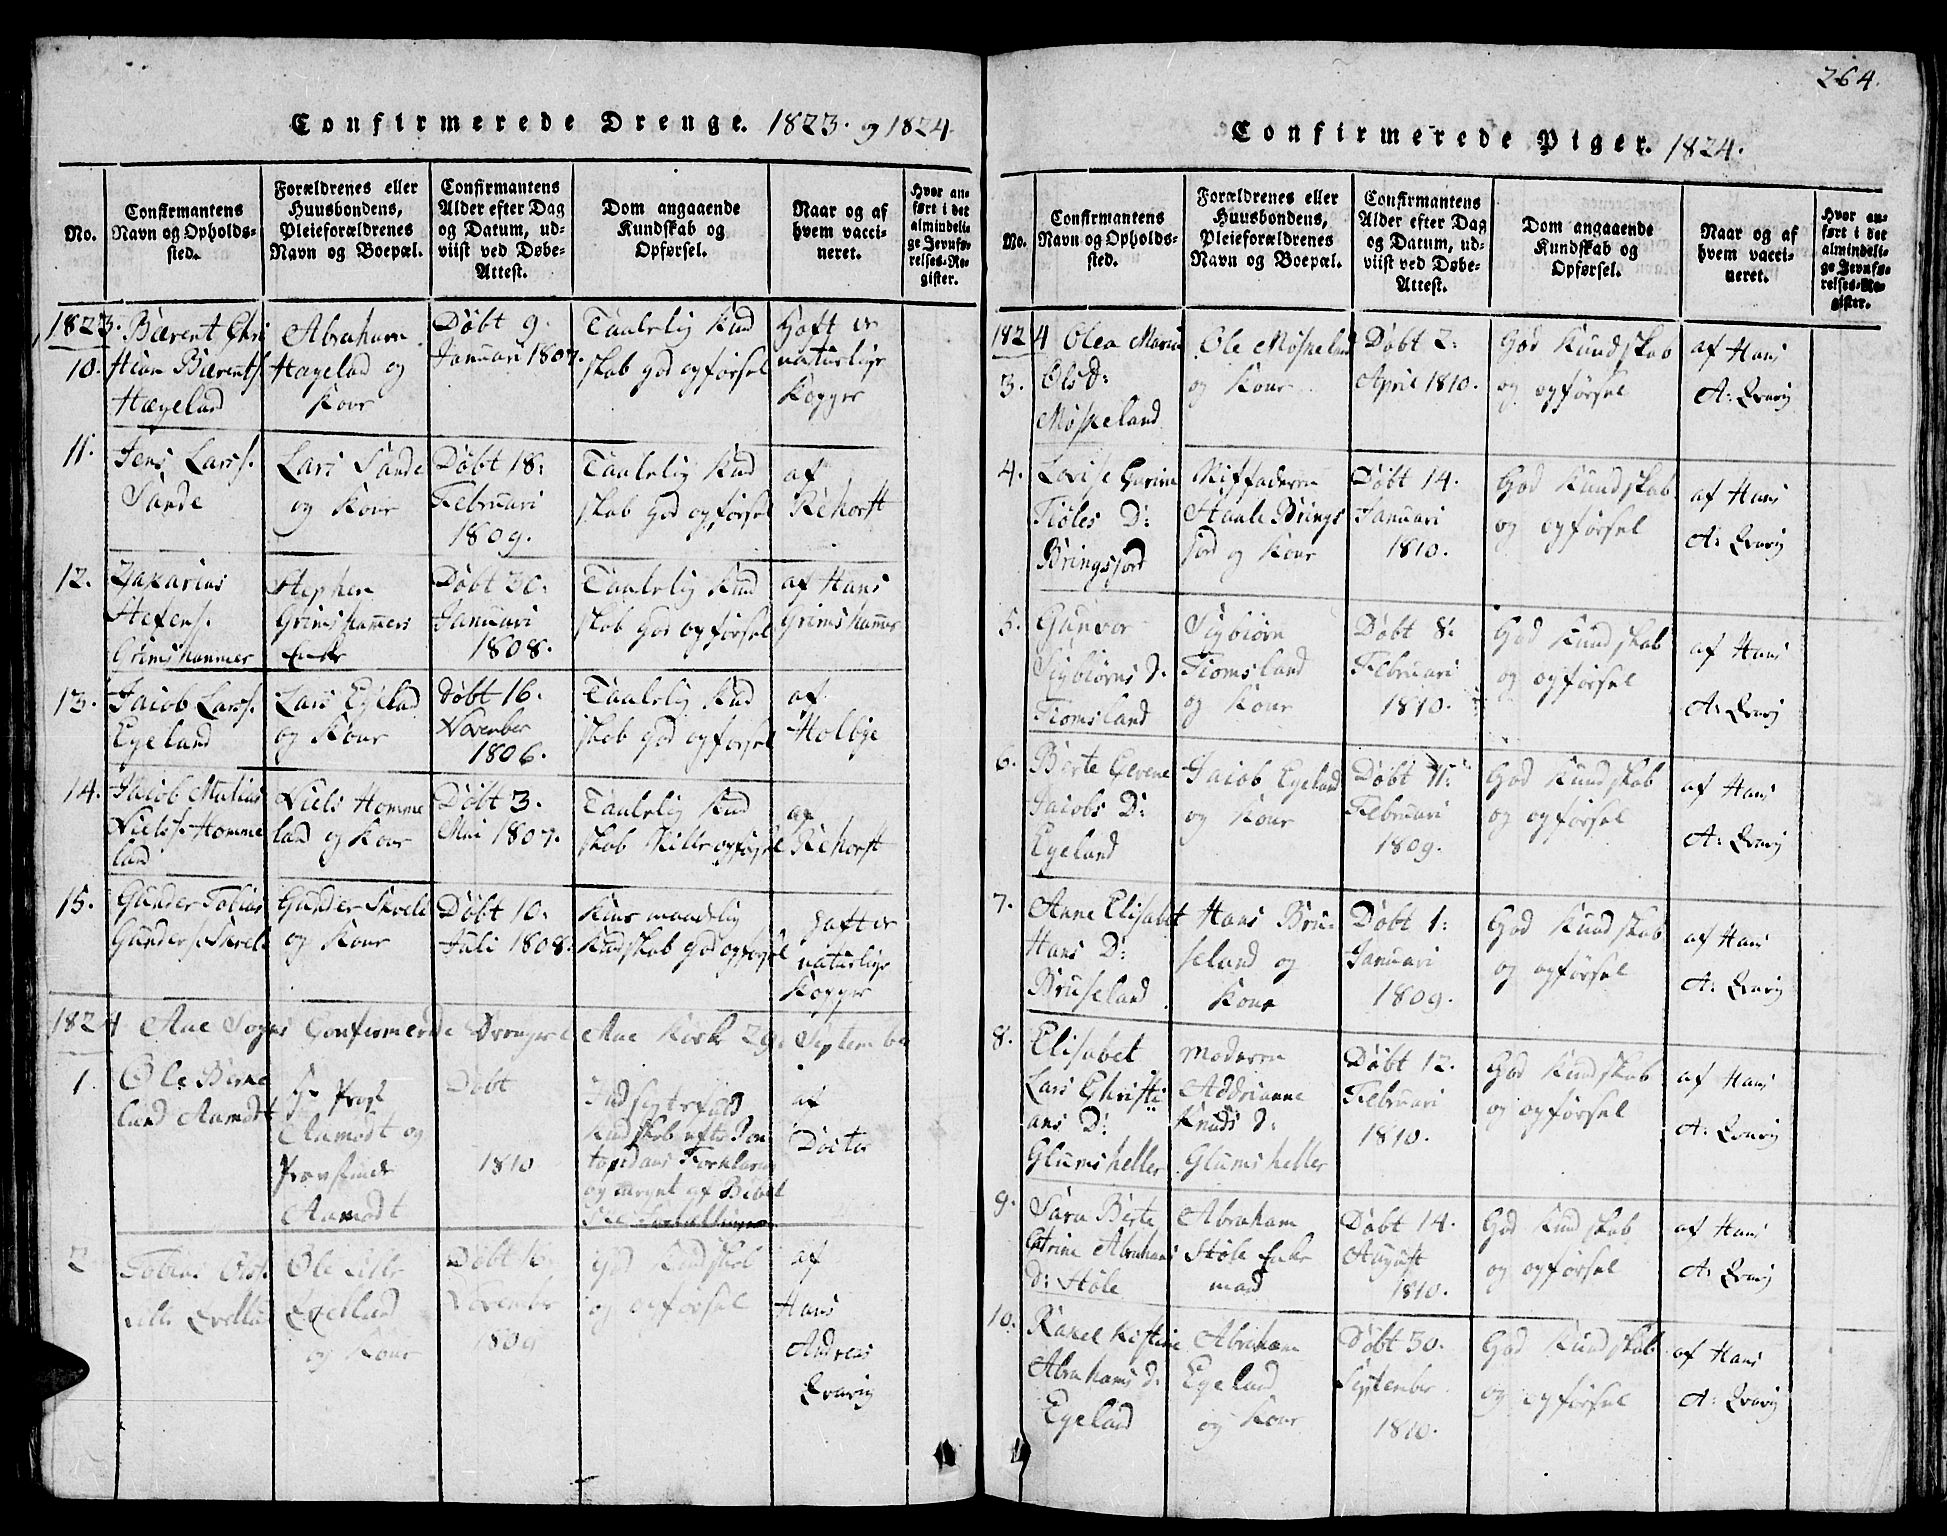 Confirmerede Drenge. 1823. og 1824.
No.
Confirmantens
Navn og Opholds-
sted.
Forældrenes eller
Huusbondens,
Pleieforældrenes
Navn og Boepæl.
Confirmantens
Alder efter Dag
og Datum, ud-
viist ved Døbe-
Attest.
Dom angaaende
Kundskab og
Opførsel.
Naar og af
hvem vacci-
neret.
Hvor an-
ført i det
almindeli-
ge Jevnfø-
relses-Re-
gister.
1823.
10.
Bærent Chri
stian Bærents.
Hægeland
Abraham
Hægeland og
Kone
Døbt 9.
Januari 1807.
Taalelig Kund
skab god opførsel
haft de
naturlige
Kopper
11.
Jens Larss.
Sande
Lars Sande
og Kone
Døbt 18:
Februari
1809.
Taalelig Kund
skab god opførsel
af
Rehorst
12.
Zakarias
Stefens.
Grimshammer
Stephen
Grimshammers
Enke
Døbt 30:
Januari
1808.
Taalelig Kund
skab god opførsel
af Hans
Grimshammer
13.
Jacob Larss.
Egeland
Lars Egeland
og Kone
Døbt 16.
November
1806.
Taalelig Kund
skab god opførsel
af
Holbye
14.
Jacob Matias
Niels s. Homme
land
Niels Homme
land og Kone
Døbt 3.
Mai 1807.
Taalelig Kund
skab Stille opførsel
af
Rehorst
15.
Gunder Tobias
Gunders. Skreli
Gunder Skreli
og Kone
Døbt 10:
Juli 1808.
Kundskab god opførsel
haft de
naturlige
Kopper
1824 Aae Sogns Confirmerede Drenge i Aae Kirke 29. September
1.
Ole Birke
land Aamodt
Hr Provst
Aamodt og
Provstinde
Aamodt
Døbt
1810
Kundskab efter Pon
topidans Forklaring
og meget af Bibel
af
Doctor
2
Tobias Ols.
Lille Qvelland
Ole Lille
Qvelland
og Kone
Døbt 10.
November
1809
god Kundskab
og opførsel
af
Hans
Andreas
Qvarig
264.
Confirmerede Piger. 1824.
No.
Confirmantens
Navn og Opholds-
sted.
Forældrenes eller
Huusbondens,
Pleieforældrenes
Navn og Boepæl.
Confirmantens
Alder efter Dag
og Datum, ud-
viist ved Døbe-
Attest.
Dom angaaende
Kundskab og
Opførsel.
Naar og af
hvem vacci-
neret.
Hvor an-
ført i det
almindeli-
ge Jevnfø-
relses-Re-
gister.
1824
3.
Olea Maria
Ols D:
Møskeland
Ole Møskeland
og Kone
Døbt 2:
April 1810.
God Kundskab
og opførsel
af Hans
A: Qvarig
4.
Lovise Gurine
Tiøles D:
Bringsjord
Stiffaderen
Staale Brings
jord og Kone
Døbt 14.
Januari
1810.
God Kundskab
og opførsel
af Hans
A: Qvarig
5.
Gunvor
Sigbiørns d.
Tiomsland
Sigbiørn
Tiomsland
og Kone
Døbt 8:
Februari
1810.
God Kundskab
og opførsel
af Hans
A: Qvarig
6.
Berte Gevene
Jacobs D:
Egeland
Jacob Egeland
og Kone
Døbt 11:
Februari
1809.
God Kundskab
og opførsel
af Hans
A: Qvarig
7.
Anne Elisabet
Hans D:
Bruseland
Hans Bru-
seland og
Kone
Døbt 1:
Januari
1809.
God Kundskab
og opførsel
af Hans
A: Qvarig
8.
Elisabet
Lars Christi
ans D:
Glumsheller
Moderen
Addrianne
Knuds d:
Glumsheller
Døbt 12.
Februari
1810.
God Kundskab
og opførsel
af Hans
A: Qvarig
9.
Sara Berte
Catrine Abrahams
d: Støle
Abraham
Støle Enke
mand
Døbt 14.
August
1810.
God Kundskab
og opførsel
af Hans
A: Qvarig
10.
Rakel Kistine
Abrahams d:
Egeland
Abraham
Egeland
og Kone
Døbt 30.
September
1810.
God Kundskab
og opførsel
af Hans
A: Qvarig